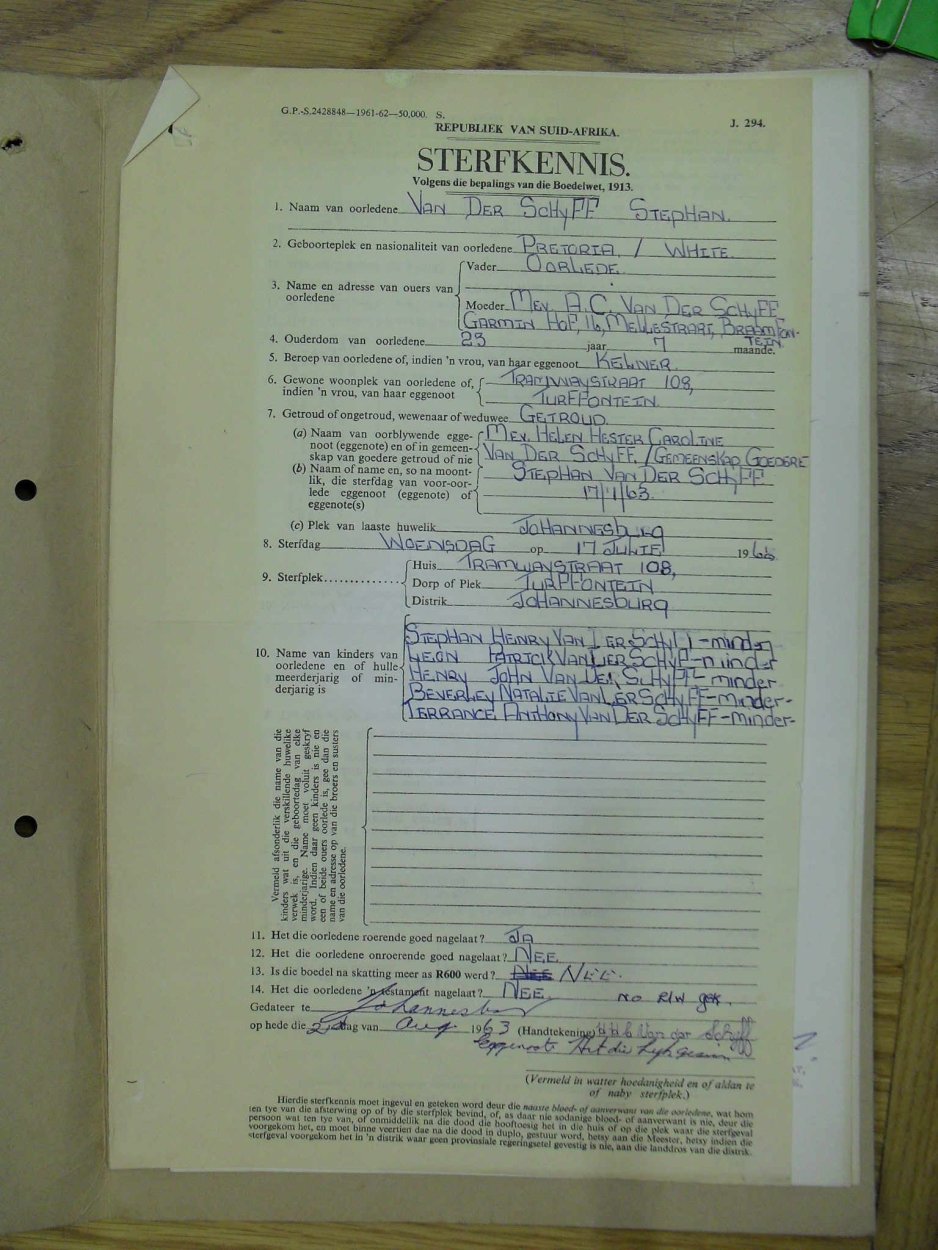 G.P.-S.2428848—1961-62—50,000. S.
J. 294.
REPUBLIEK VAN SUID-AFRIKA.
STERFKENNIS.
Volgens die bepalings van die Boedelwet, 1913.
1. Naam van oorledene VAN DER SCHYFF STEPHAN.
2. Geboorteplek en nasionaliteit van oorledene PRETORIA / WHITE.
3. Name en adresse van ouers van oorledene
Vader OORLEDE.
Moeder MEV. A.C. VAN DER SCHYFF
GARMIN HOF, 16, MELLESTRAAT, BRAAMFON-
TEIN.
4. Ouderdom van oorledene 23 jaar 7 maande.
5. Beroep van oorledene of, indien 'n vrou, van haar eggenoot KELNER.
6. Gewone woonplek van oorledene of, TRAMWAYSTRAAT 108,
indien 'n vrou, van haar eggenoot TURFFONTEIN.
7. Getroud of ongetroud, wewenaar of weduwee GETROUD.
(a) Naam van oorblywende egge- MEV. HELEN HESTER CAROLINE
noot (eggenote) en of in gemeen- VAN DER SCHYFF. /GEMEENSKAP GOEDERE
skap van goedere getroud of nie
(b) Naam of name en, so na moont- STEPHAN VAN DER SCHYFF
lik, die sterfdag van voor-oor-
lede eggenoot (eggenote) of 17/1/63.
eggenote(s)
(c) Plek van laaste huwelik JOHANNESBURG
8. Sterfdag WOENSDAG op 17 JULIE 196
9. Sterfplek
Huis TRAMWAYSTRAAT 108,
Dorp of Plek TURFFONTEIN
Distrik JOHANNESBURG
10. Name van kinders van oorledene en of hulle meerderjarig of minderjarig is
STEPHAN HENRY VAN DER SCHYFF-minder
LEON PATRICK VAN DER SCHYFF-minder
HENRY JOHN VAN DER SCHYFF-minder-
BEVERLEY NATALIE VAN DER SCHYFF-minder-
TERRANCE ANTHONY VAN DER SCHYFF-minder-
Vermeld afsonderlik die name van die
kinders wat uit die verskillende huwelike
verwek is, en die geboortedag van elke
minderjarige. Name moet voluit geskryf
word. Indien daar geen kinders is nie en
een of beide ouers oorlede is, gee dan die
name en adresse op van die broers en susters
van die oorledene.
11. Het die oorledene roerende goed nagelaat? JA
12. Het die oorledene onroerende goed nagelaat? NEE.
13. Is die boedel na skatting meer as R600 werd? NEE NEE.
14. Het die oorledene 'n testament nagelaat? NEE. no R/W gek.
Gedateer te Johannesburg
op hede die dag van Aug 1963 (Handtekening) H H C Van der Schyff
Eggenoote Het die lyk gesien
(Vermeld in watter hoedanigheid en of aldan te
of naby sterfplek.)
Hierdie sterfkennis moet ingevul en geteken word deur die naaste bloed- of aanverwant van die oorledene, wat hom
ten tye van die afsterwing op of by die sterfplek bevind, of, as daar nie sodanige bloed- of aanverwant is nie, deur die
persoon wat ten tye van, of onmiddellik na die dood die hooftoesig het in die huis of op die plek waar die sterfgeval
voorgekom het, en moet binne veertien dae na die dood in duplo, gestuur word, hetsy aan die Meester, hetsy indien die
sterfgeval voorgekom het in 'n distrik waar geen provinsiale regeringsetel gevestig is nie, aan die landdros van die distrik.